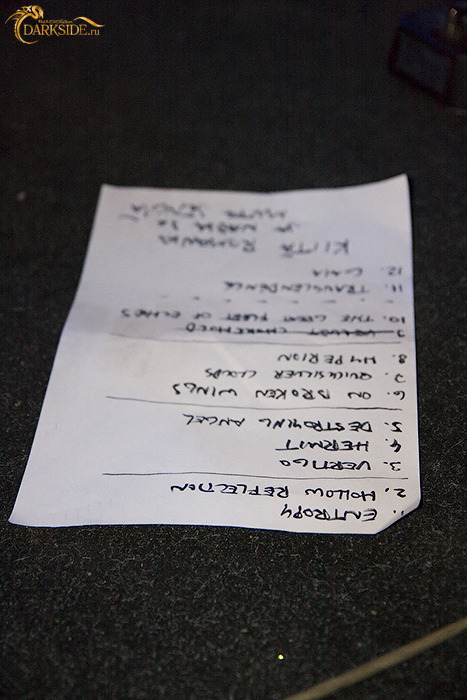 DARKSIDE.ru
1. ENTROPY
2. HOLLOW REFLECTION
3. VERTIGO
4. HERMIT
5. DESTROYING ANGEL
6. ON BROKEN WINGS
7. QUICKSILVER CLOUDS
8. HYPERION
9.
10. THE GREAT FLEET OF ECHOES
11. TRANSCENDENCE
12. GAIA